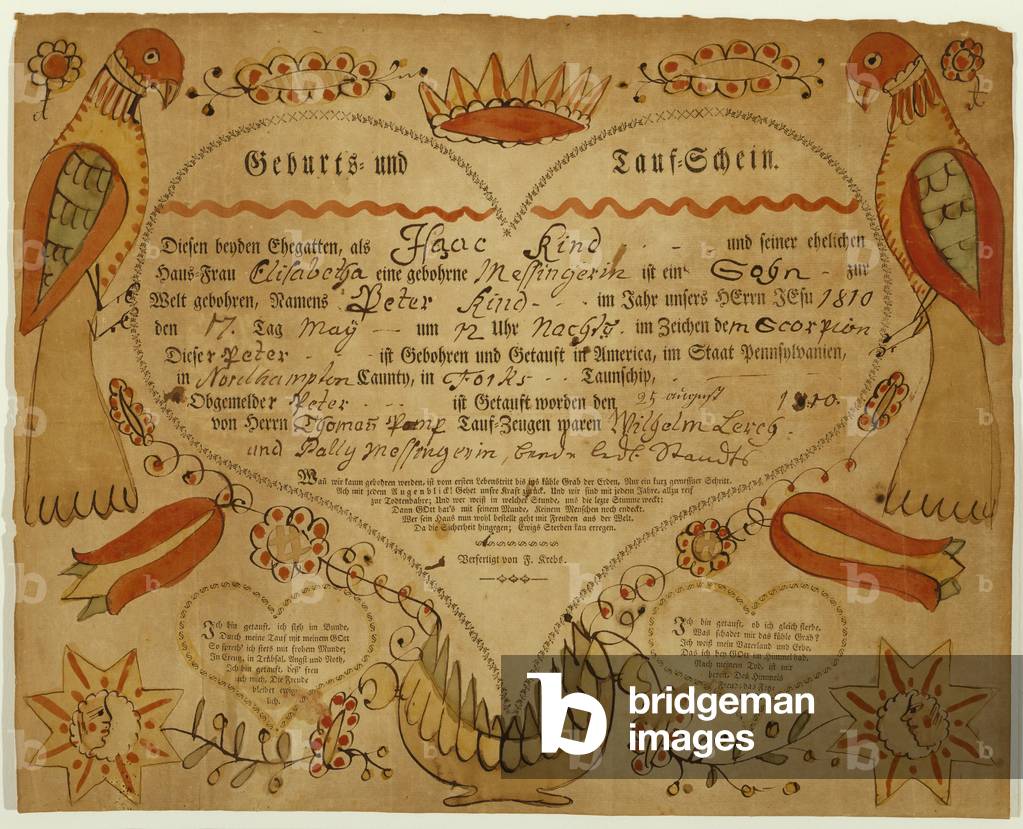 Geburts- und Tauf-Schein.
Diesen beyden Ehegatten, als Isaac Kind und seiner ehelichen
Haus-Frau Elisabetha eine gebohrne Messingerin ist ein Sohn zur
Welt gebohren, Namens Peter Kind im Jahr unsers HErrn JEsu 1810
den 17. Tag May um 12 Uhr Nachts. im Zeichen dem Scorpion
Dieser Peter ist Gebohren und Getauft in America, im Staat Pennsylvanien,
in Nordhampton Caunty, in Forks Taunschip,
Obgemelder Peter ist Getauft worden den 25 august 1810.
von Herrn Thomas Pomp Tauf-Zeugen waren Wilhelm Lerch
und Pally Messingerin, beyde ledt. Standts
Wañ wir kaum gebohren werden, ist vom ersten Lebenstritt bis ins kühle Grab der Erden, Nur ein kurz gemeßner Schritt.
Ach mit jedem Augenblick! Gehet unsre Kraft zurück, Und wir sind mit jedem Jahre, allzu reif
zur Todtenbahre; Und wer weiß in welcher Stunde, uns die lezte Stimme weckt;
Dann GOtt hat's mit seinem Munde, Keinem Menschen noch endeckt.
Wer sein Haus nun wohl bestellt geht mit Freuden aus der Welt.
Da die Sicherheit hingegen; Ewigs Sterben kan erregen.
Verfertigt von F. Krebs.
Ich bin getauft, ich steh im Bunde,
Durch meine Tauf mit meinem GOtt
So sprech' ich stets mit frohem Munde;
In Creutz, in Trübsal, Angst und Noth,
Ich bin getauft, deß' freu
ich mich, Die Freude
bleibet ewig-
lich.
Ich bin getauft, ob ich gleich sterbe,
Was schadet mir das kühle Grab?
Ich weiß mein Vaterland und Erbe,
Das ich bey GOtt im Himmel hab,
Nach meinem Tod, ist mir
bereit, Des Himmels
Freud; das Feye
bridgeman
images